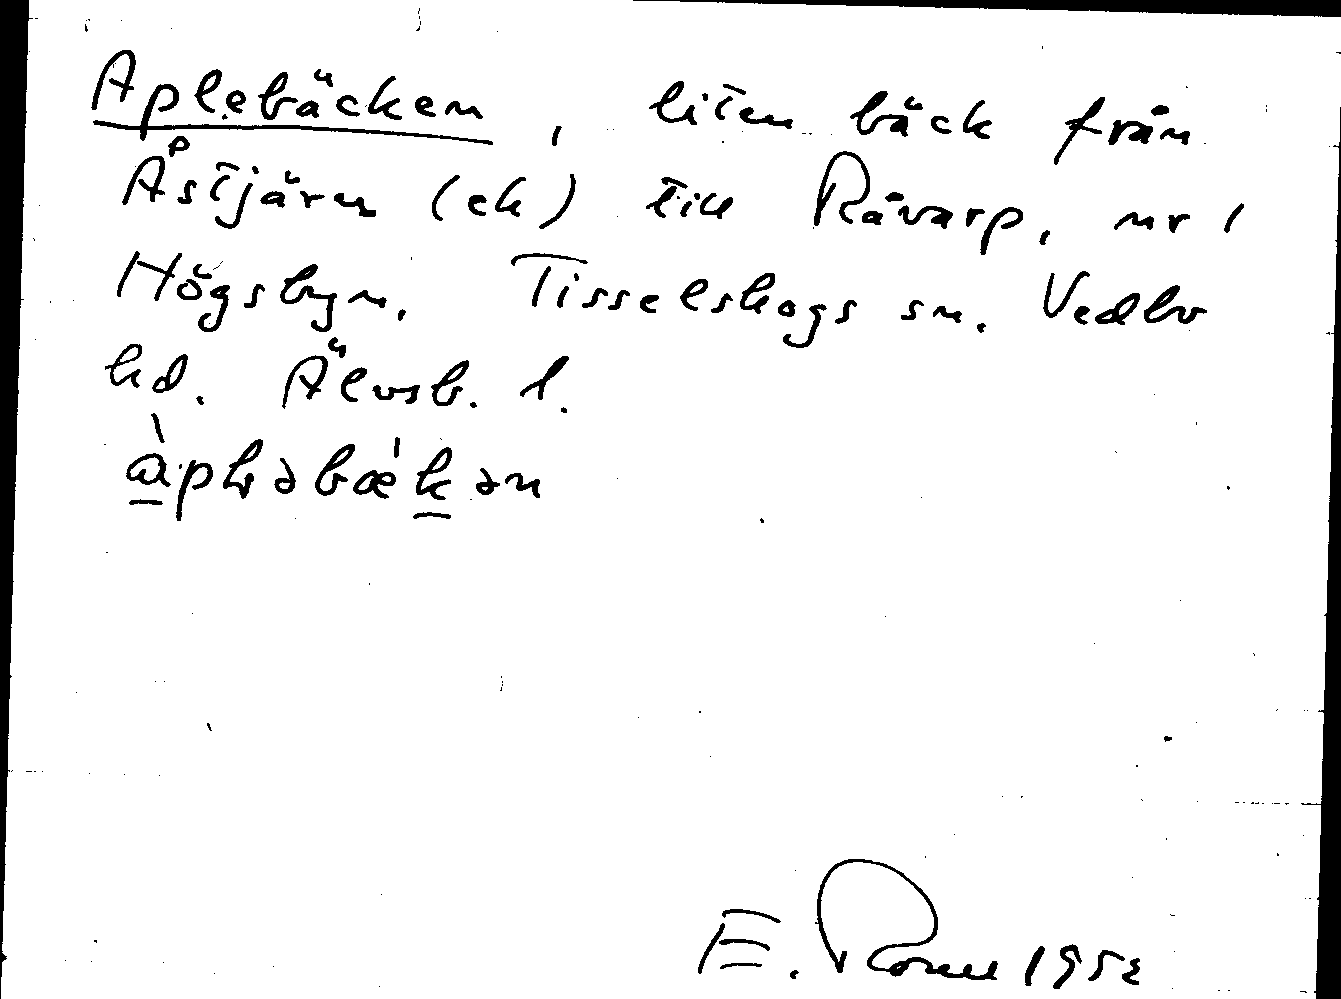 Aplebäcken, liten bäck från
Åstjärn (ek) till Råvarp, nr 1
Högsbyn. Tisselskogs sn. Vedbo
hd. Älvsb. l.
E. 1952